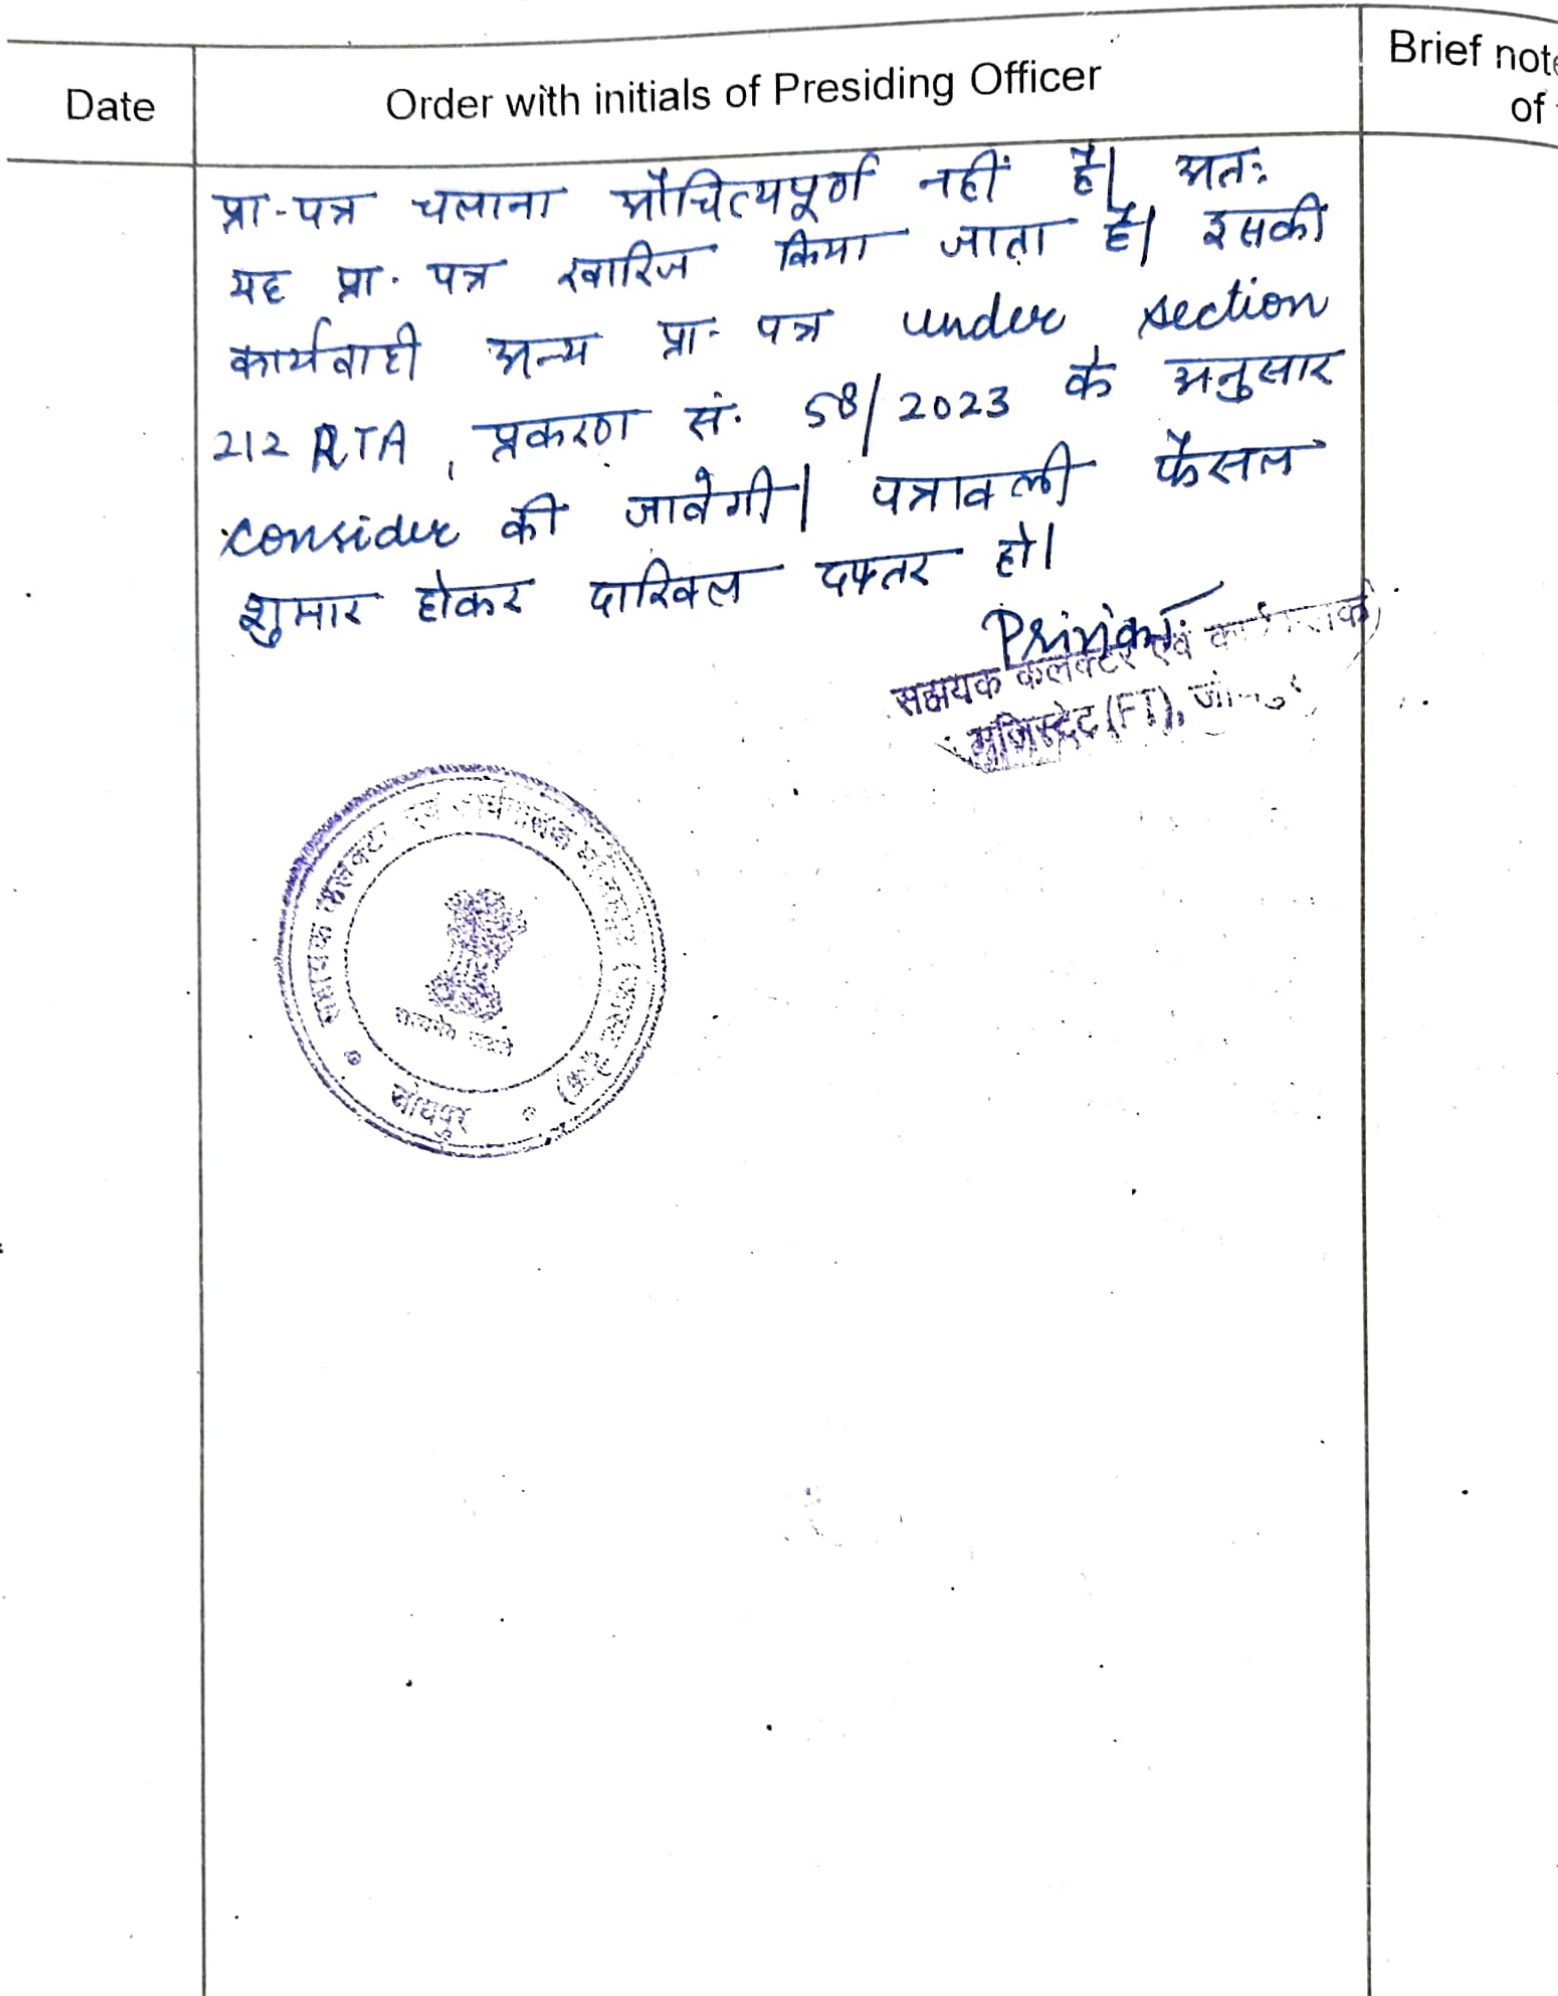 Date
Order with initials of Presiding Officer
Brief note
of
प्रा-पत्र चलाना औचित्यपूर्ण नहीं है। अतः
यह प्रा. पत्र खारिज किया जाता है। इसकी
कार्यवाही अन्य प्रा- पत्र under section
212 RTA, प्रकरण सं. 58/2023 के अनुसार
consider की जावेगी। पत्रावली फैसल
शुमार होकर दाखिल दफ्तर हो।
सहायक कलक्टर एवं
मजिस्ट्रेट (FT),
सहायक कलक्टर एवं कार्यपालक
सत्यमेव जयते
जोधपुर